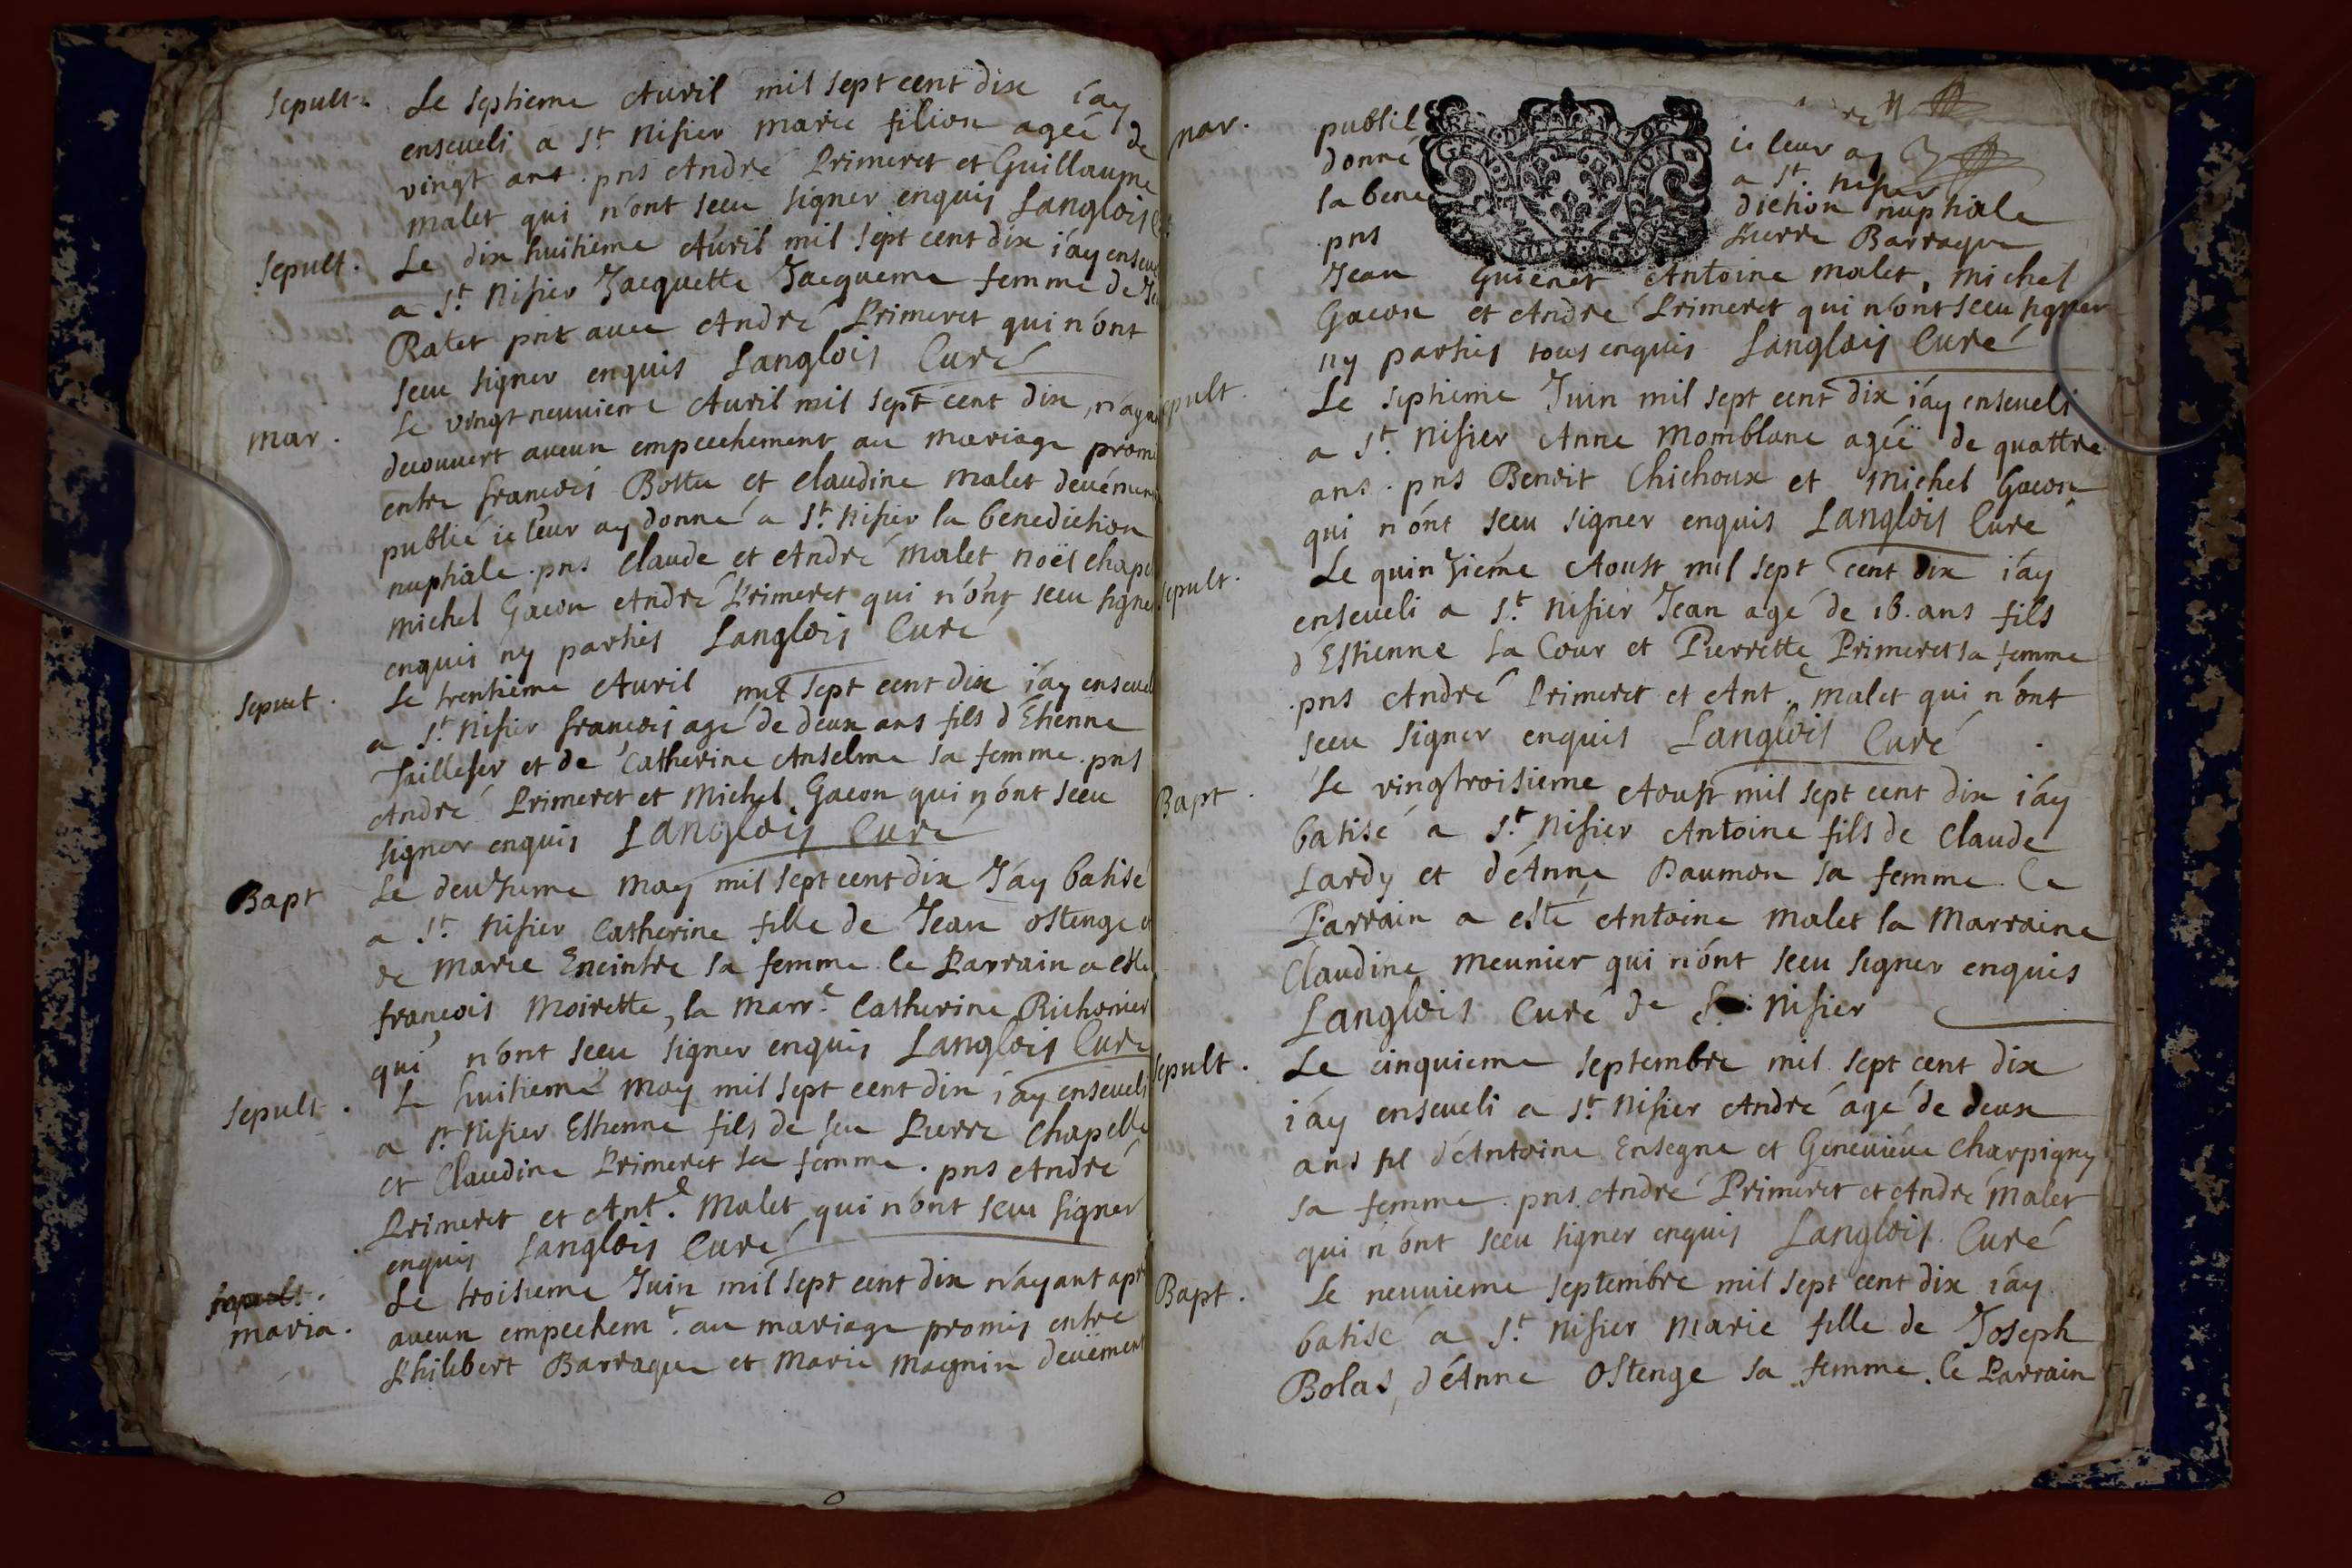 sepult. Le septieme Auril mil sept cent dix i'ay
enseueli a St Nisier marie filion agée de
vingt ans. pns André Primeret et Guillaume
malet qui n'ont sceu signer enquis Langlois
sepult. Le dix huitieme Auril mil sept cent dix i'ay enseue
a St. Nisier Jacquette Jacqueme femme de
Ratet pnt auec André Primeret qui n'ont
sceu signer enquis Langlois Curé
mar. Le vingt neuuieme Auril mil sept cent dix, n'ayan
decouuert aucun empecchement au mariage prom
entre françois Bottu et Claudine malet deuëmen
publié ie leur ay donné a St. Nisier la benediction
nuptiale. pns Claude et André malet noël chape
michel Gacon André Primeret qui n'ont sceu signe
enquis ny parties Langlois Curé
sepult. Le trentieme Auril mil sept cent dix i'ay enseuel
a St. Nisier françois agé de deux ans fils d'Etienne
Taillefer et de Catherine Anselme sa femme. pns
André Primeret et Michel Gacon qui n'ont sceu
signer enquis Langlois Curé
Bapt Le deuzieme may mil sept cent dix J'ay batisé
a St. Nisier Catherine fille de Jean Ostenge
de Marie Eneintre sa femme. le Parrain a esté
françois Moirette, la marre Catherine Richonier
qui n'ont sceu signer enquis Langlois Curé
sepult. Le huitieme may mil sept cent dix i'ay enseueli
a St Nisier Estienne fils de feu Pierre Chapelle
et Claudine Primeret sa femme. pns André
Primeret et Ante. Malet qui n'ont sceu signer
enquis Langlois Curé
sepult.
maria. Le troisieme Juin mil sept cent dix n'ayant apr
aucun empechemt. au mariage promis entre
Philibert Barraque et Marie Magnin deuëment
mar. publié ie leur ay
donné a St. Nisier
la bene diction nuptiale
pns Pierre Barraque
Jean Guienet Antoine malet, Michel
Gacon et André Primeret qui n'ont sceu signer
ny parties tous enquis Langlois Curé
epult. Le septieme Juin mil sept cent dix i'ay enseueli
a St. Nisier Anne Momblanc agéë de quattre
ans. pns Benoit Chichoux et Michel Gacon
qui n'ont sceu signer enquis Langlois Curé
sepult. Le quinzieme Aoust mil sept cent dix i'ay
enseueli a St. Nisier Jean agé de 16. ans fils
d'Estienne la Cour et Pierrette Primeret sa femme
pns André Primeret et Ante. malet qui n'ont
sceu signer enquis Langlois Curé
Bapt. Le vingtroisieme Aoust mil sept cent dix i'ay
batisé a St. Nisier Antoine fils de Claude
Lardy et d'Anne Daumon sa femme. Le
Parrain a esté Antoine Malet la Marraine
Claudine meunier qui n'ont sceu signer enquis
Langlois Curé de St. Nisier
sepult. Le cinquieme septembre mil sept cent dix
i'ay enseueli a St. Nisier André agé de deux
ans fil d'Antoine Ensegne et Geneuiéue Charpigny
sa femme. pns André Primeret et André Malet
qui n'ont sceu signer enquis Langlois Curé
Bapt. Le neuuieme septembre mil sept cent dix i'ay
batisé a St. Nisier Marie fille de Joseph
Bolas, d'Anne Ostenge sa femme. le Parrain